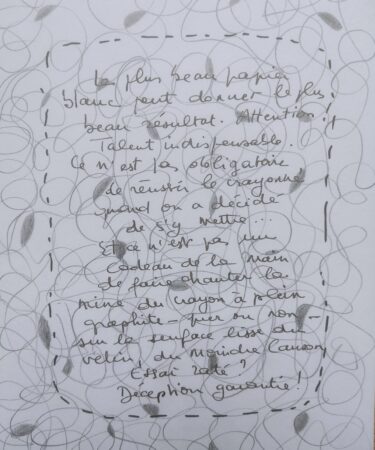 Le plus beau papier
blanc peut donner le plus
beau résultat. Attention!
Talent indispensable.
Ce n'est pas obligatoire
de réussir le crayonné
quand on a décidé
de s'y mettre...
Et ce n'est pas un
cadeau de la main
de faire chanter la
mine du crayon à plein
graphite - pur ou non -
sur la surface lisse du
vélin, du moindre Canson
Essai raté?
Déception garantie!